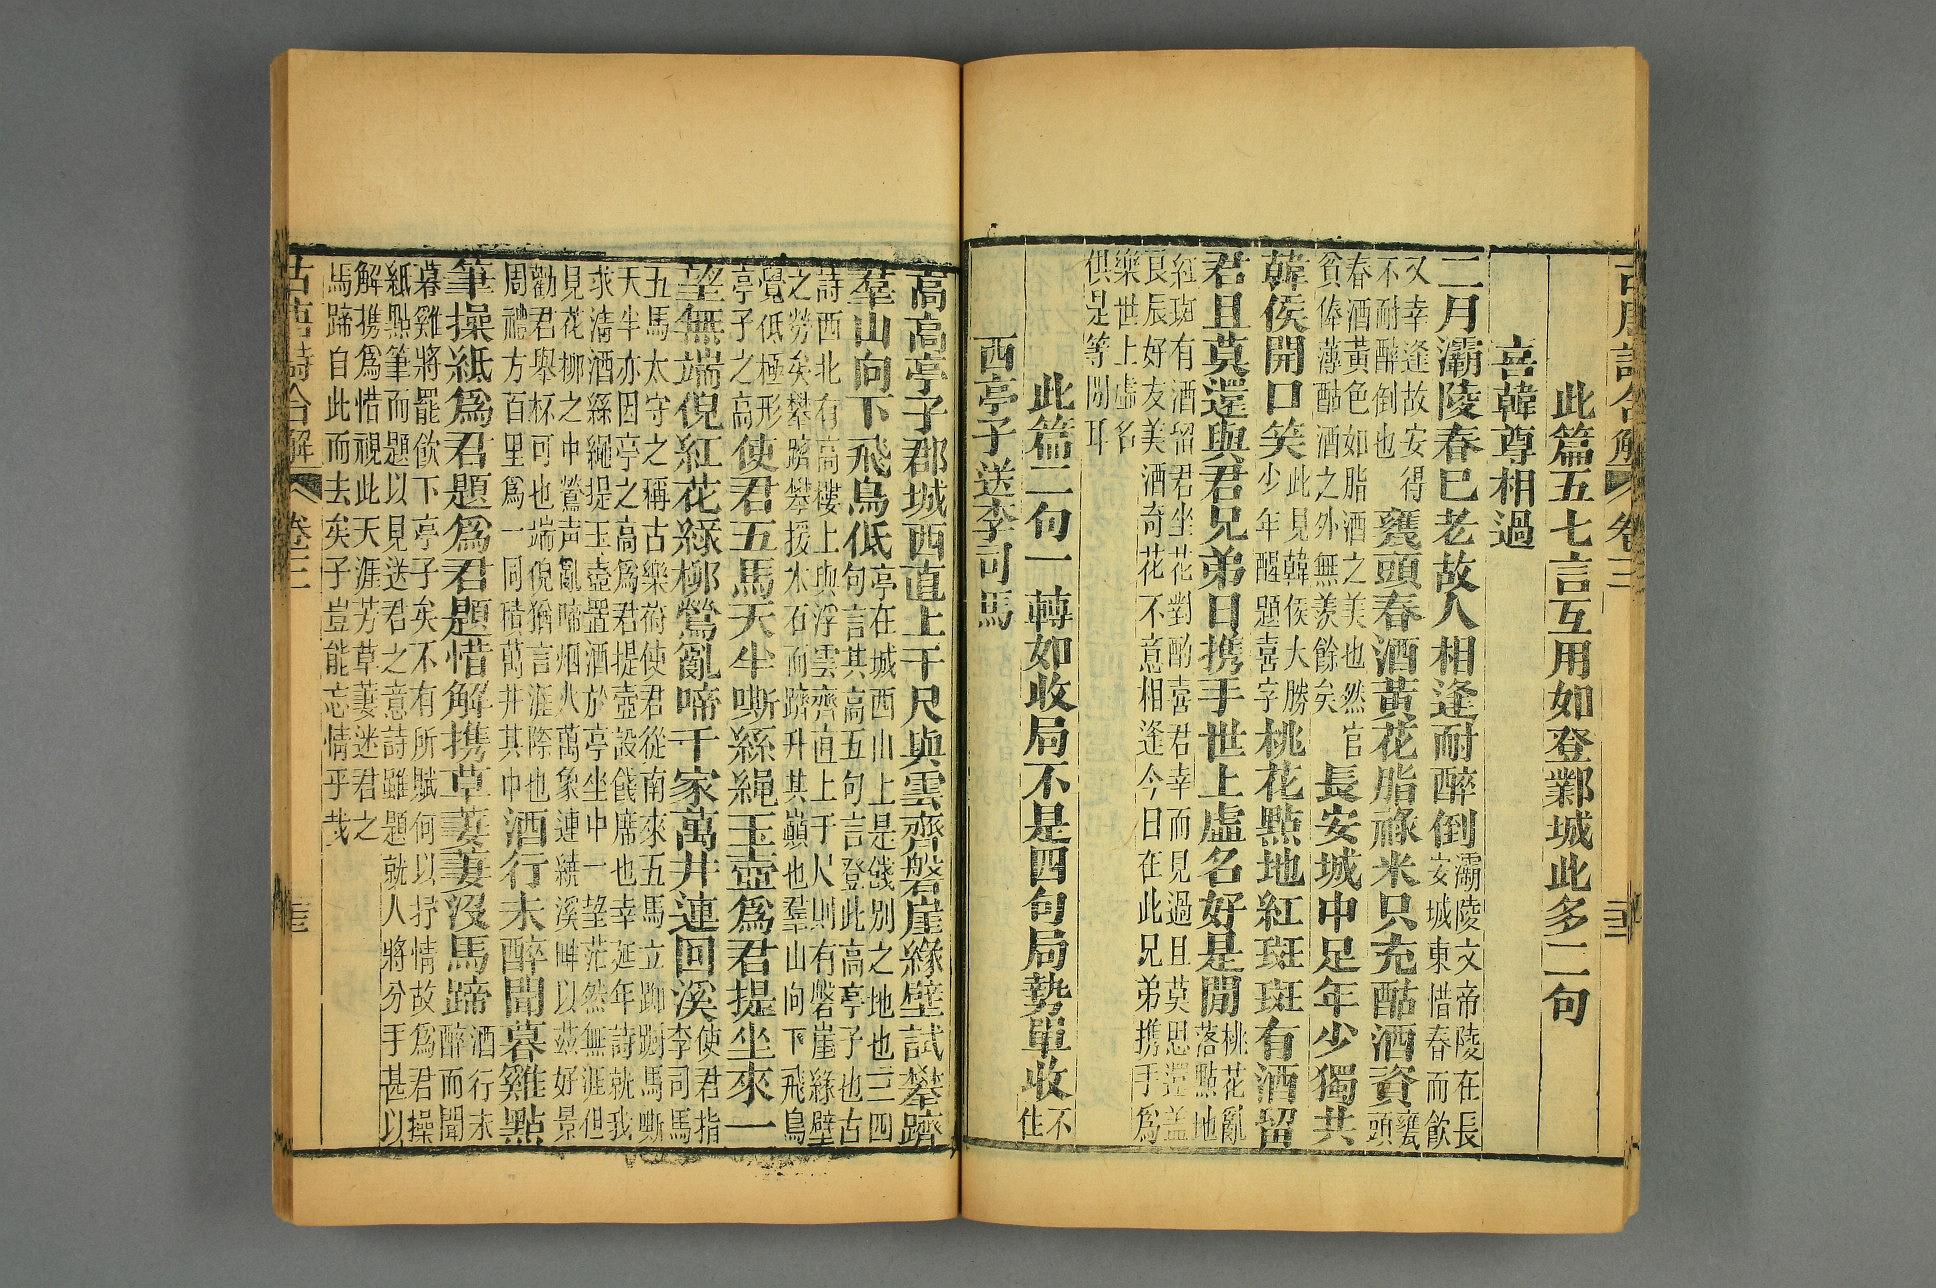 古唐詩合解 卷三
此篇五七言互用如登鄴城此多二句
喜韓尊相過
二月灞陵春已老故人相逢耐醉倒灞陵文帝陵在長安城東惜春而飲
又幸逢故安得不耐醉倒也甕頭春酒黃花脂祿米只充酤酒資甕頭
春酒黃色如脂酒之美也然官貧俸薄酤酒之外無羨餘矣長安城中足年少獨共
韓侯開口笑此見韓侯大勝少年醒題喜字桃花點地紅斑斑有酒留
君且莫還與君兄弟日携手世上虛名好是閒桃花亂落點地
紅斑有酒留君坐花對酌喜君幸而見過且莫思還蓋良辰好友美酒奇花不意相逢今日在此兄弟携手爲
樂世上虛名俱是等閒耳
此篇二句一轉如收局不是四句局勢單收不住
西亭子送李司馬
高高亭子郡城西直上千尺與雲齊磐崖緣壁試攀躋
羣山向下飛鳥低亭在城西山上是餞別之地也三四句言其高五句言登此高亭子也古
詩西北有高樓上與浮雲齊直上于人則有磐崖緣壁之勞矣攀躋攀援木石而躋升其巔也羣山向下飛鳥
覺低極形亭子之高使君五馬天半嘶絲繩玉壺爲君提坐來一
望無端倪紅花綠柳鶯亂啼千家萬井連回溪使君指李司馬
五馬太守之稱古樂府使君從南來五馬立踟躕馬嘶天半亦因亭之高爲君提壺設餞席也幸延年詩就我
求淸酒絲繩提玉壺置酒於亭坐中一望茫然無涯但見花柳之中鶯声亂啼烟火萬象連繞溪畔以玆好景
勸君舉杯可也端倪猶言涯際也周禮方百里爲一同積萬井其中酒行未醉聞暮雞點
筆操紙爲君題爲君題惜解携草萋萋沒馬蹄酒行未醉而聞
暮雞將罷飲下亭子矣不有所賦何以抒情故爲君操紙點筆而題以見送君之意詩雖題就人將分手甚以
解携爲惜視此天涯芳草萋迷君之馬蹄自此而去矣予豈能忘情乎哉
古唐詩合解 卷三